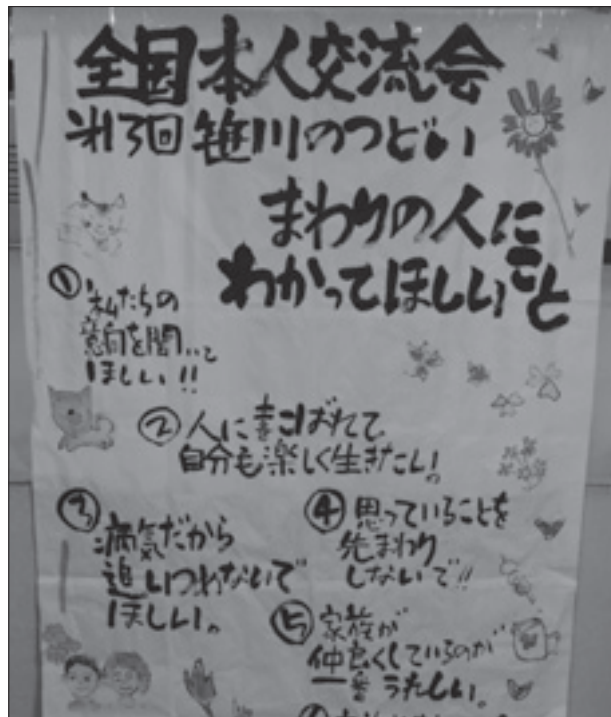 全国本人交流会
第13回 笹川のつどい
まわりの人に
わかってほしいこと
① 私たちの
意向を聞いて
ほしい!!
② 人に喜こばれて
自分も楽しく生きたい。
③ 病気だから
追いつめないで
ほしい。
④ 思っていることを
先まわり
しないで!!
⑤ 家族が
仲良くしているのが
一番うれしい。